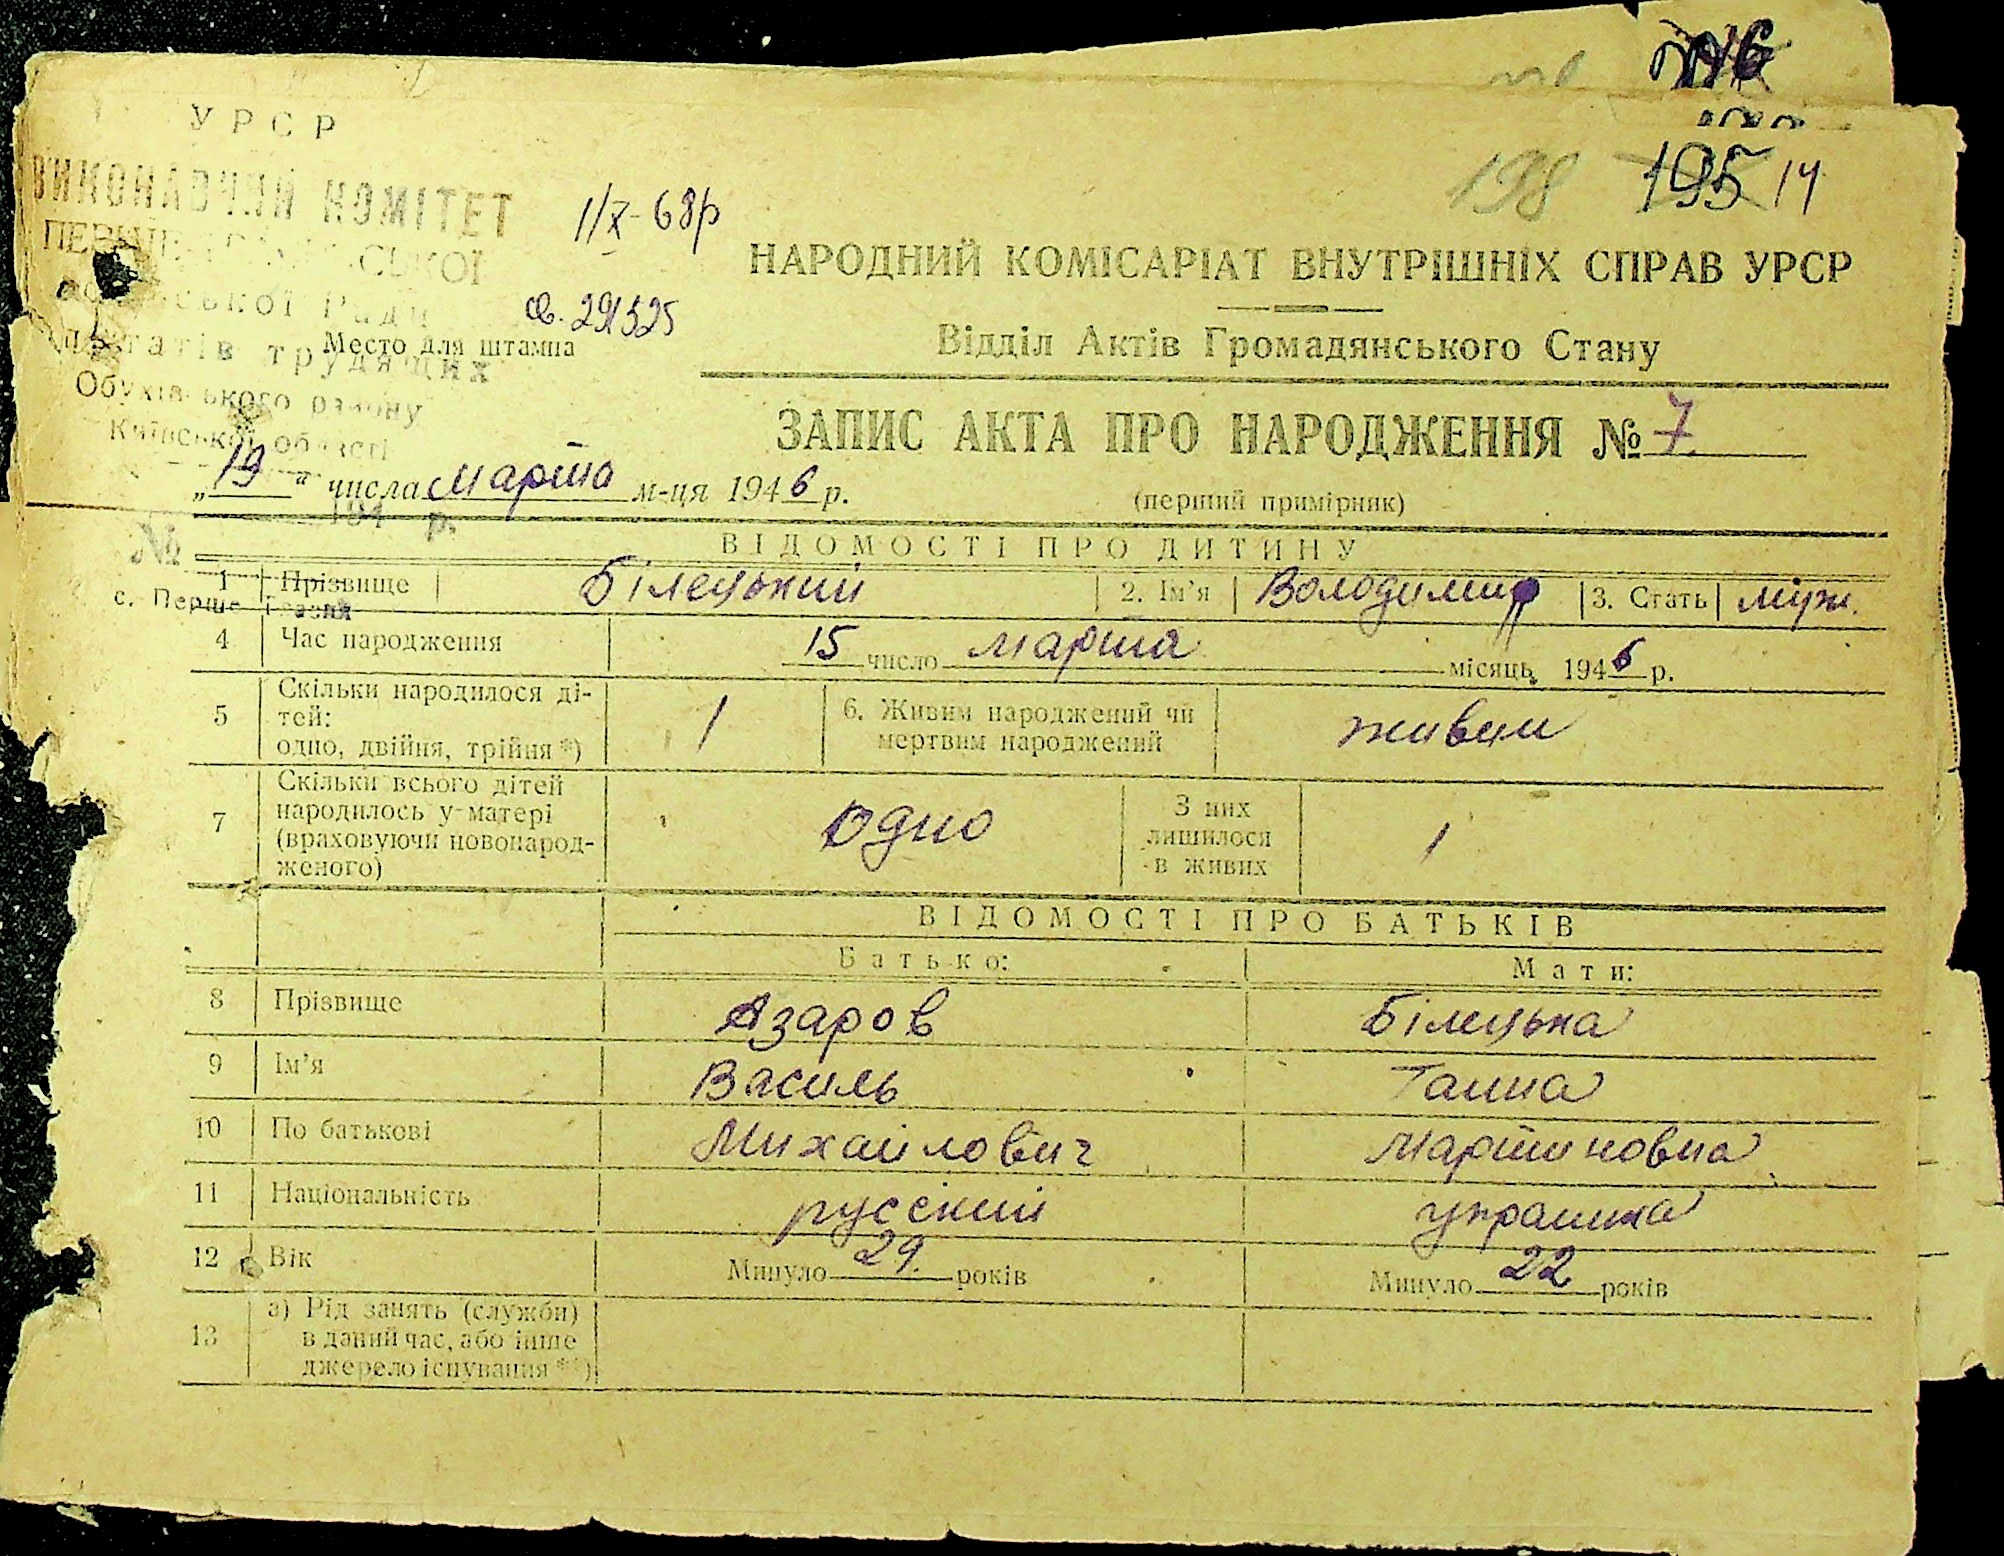 УРСР
ВИКОНАВЧИЙ КОМІТЕТ
І/X-68р
198 195 14
НАРОДНИЙ КОМІСАРІАТ ВНУТРІШНІХ СПРАВ УРСР
св. 291525
Ради
Место для штампа
Відділ Актів Громадянського Стану
трудящих
Обухівського району
Київської області
ЗАПИС АКТА ПРО НАРОДЖЕННЯ № 7.
„19“ числа марта м-ця 1946 р.
(перший примірник)
194 р.
№
ВІДОМОСТІ ПРО ДИТИНУ
1 Прізвище Білецький 2. Ім'я Володимир 3. Стать муж.
с. Перше
4 Час народження 15 число марта місяць 1946 р.
5 Скільки народилося ді-
тей:
одно, двійня, трійня *) 1
6. Живим народжений чи
мертвим народжений живим
7 Скільки всього дітей
народилось у матері
(враховуючи новонарод-
женого) одно
З них
лишилося
в живих 1
ВІДОМОСТІ ПРО БАТЬКІВ
Батько: Мати:
8 Прізвище Азаров Білецька
9 Ім'я Василь Ганна
10 По батькові Михайлович Мартиновна
11 Національність русский украинка
12 Вік Минуло 29. років Минуло 22 років
13 а) Рід занять (служби)
в даний час, або інше
джерело існування **)